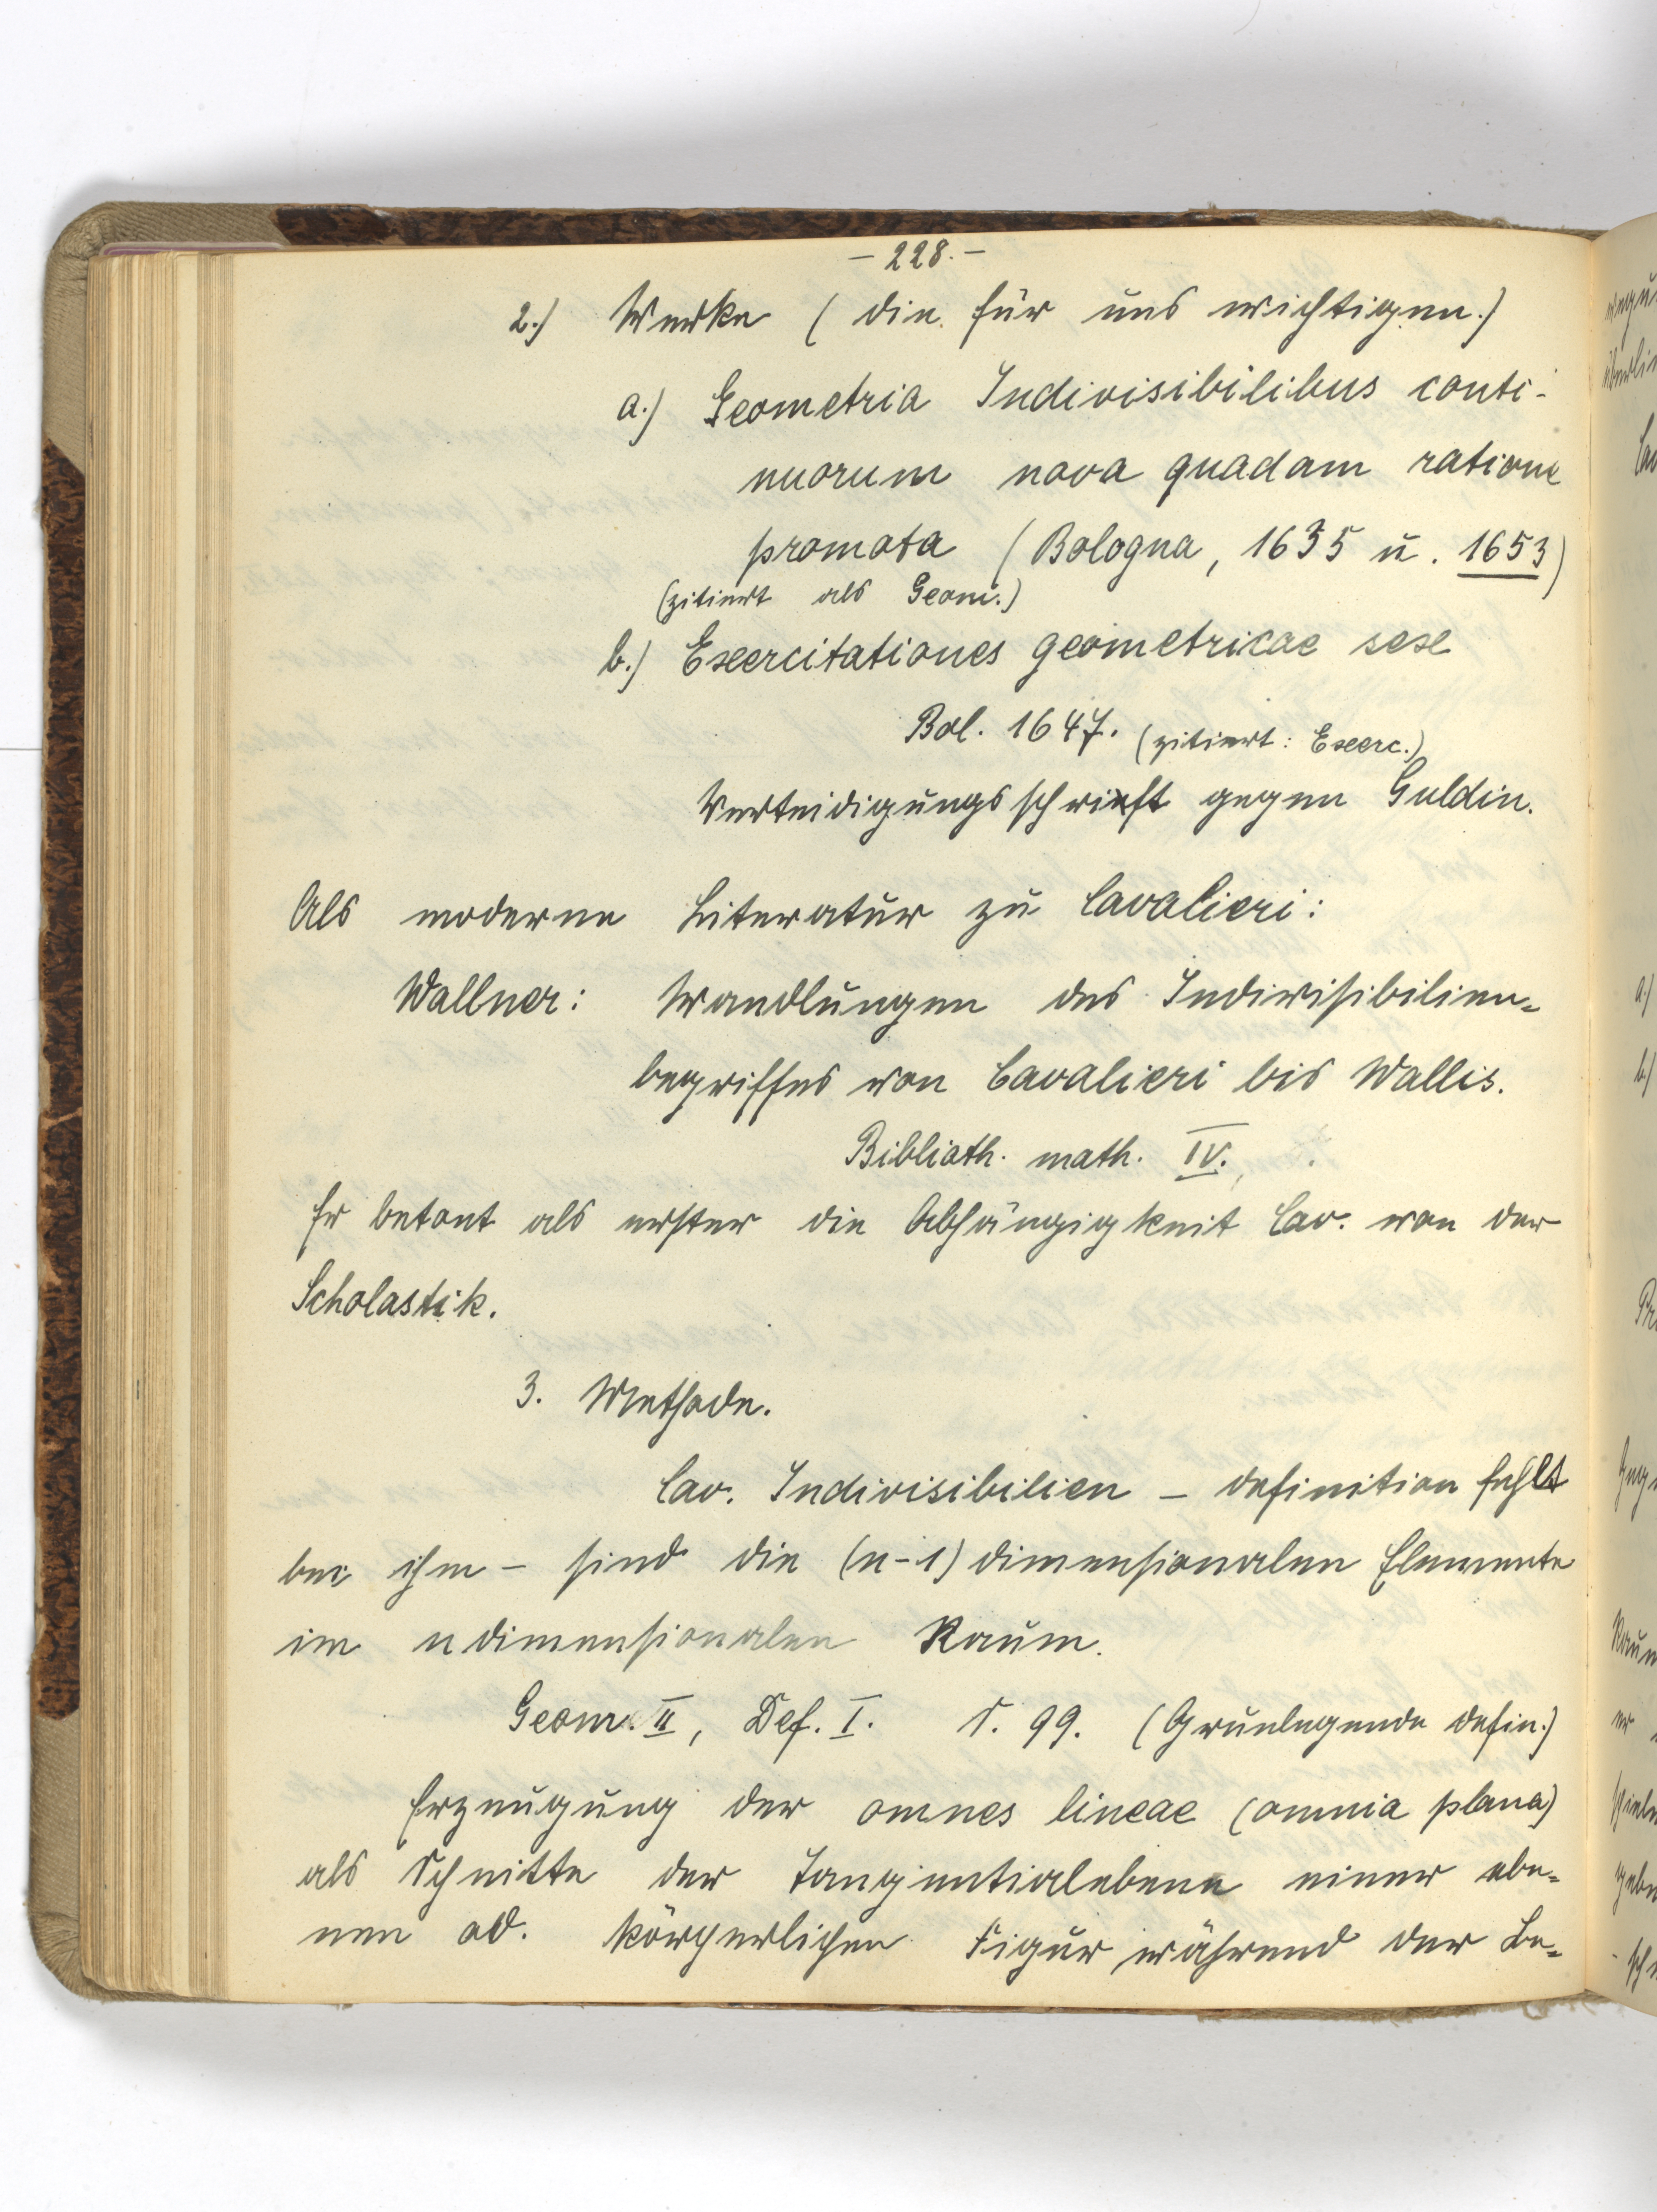 - 228. -
2.) Werke (die für uns wichtigen.)
a.) Geometria Indivisibilibus conti-
nuorum nova quadam ratione
promota (Bologna, 1635 u. 1653)
(zitiert als Geom.)
b.) Exercitationes geometricae sex
Bol. 1647. (zitiert: Exerc.)
Verteidigungsschrift gegen Guldin.
Als moderne Literatur zu Cavalieri:
Wallner: Wandlungen des Indivisibilien-
begriffes von Cavalieri bis Wallis.
Biblioth. math. IV.
Er betont als erster die Abhängigkeit Cav. von der
Scholastik.
3. Methode.
Cav. Indivisibilien - Definition fehlt
bei ihm - sind die (n-1) dimensionalen Elemente
im n dimensionalen Raum.
Geom. II, Def. I. S. 99. (Grunlegende Defin.)
Erzeugung der omnes lineae (omnia plana)
als Schnitte der Tangentialebene einer ebe-
nen od. körperlichen Figur während der Be-